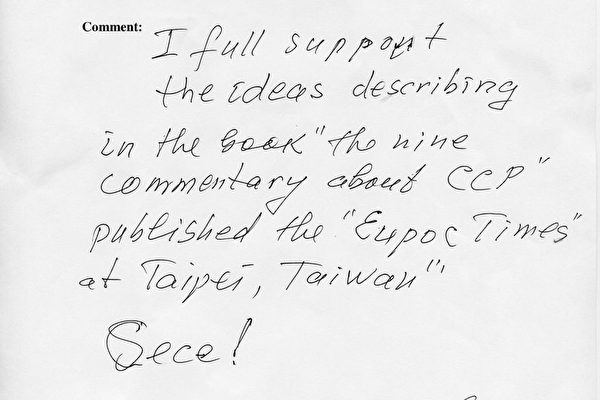 Comment:
I full support
the ideas describing
in the book "the nine
commentary about CCP"
published the "Eupoc Times"
at Taipei, Taiwan"